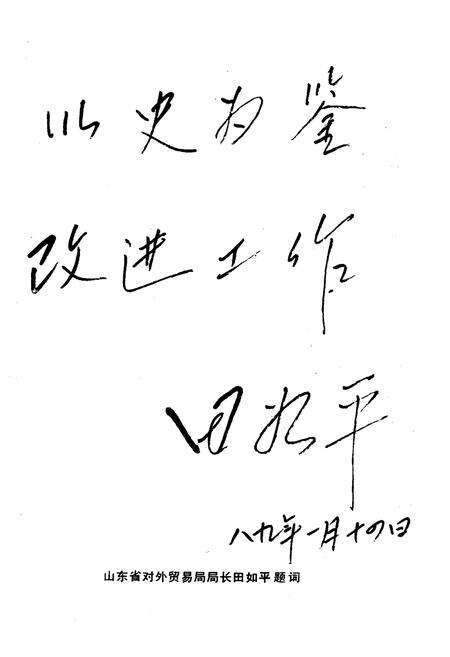 以史为鉴
改进工作
田如平
八九年一月十四日
山东省对外贸易局局长田如平题词